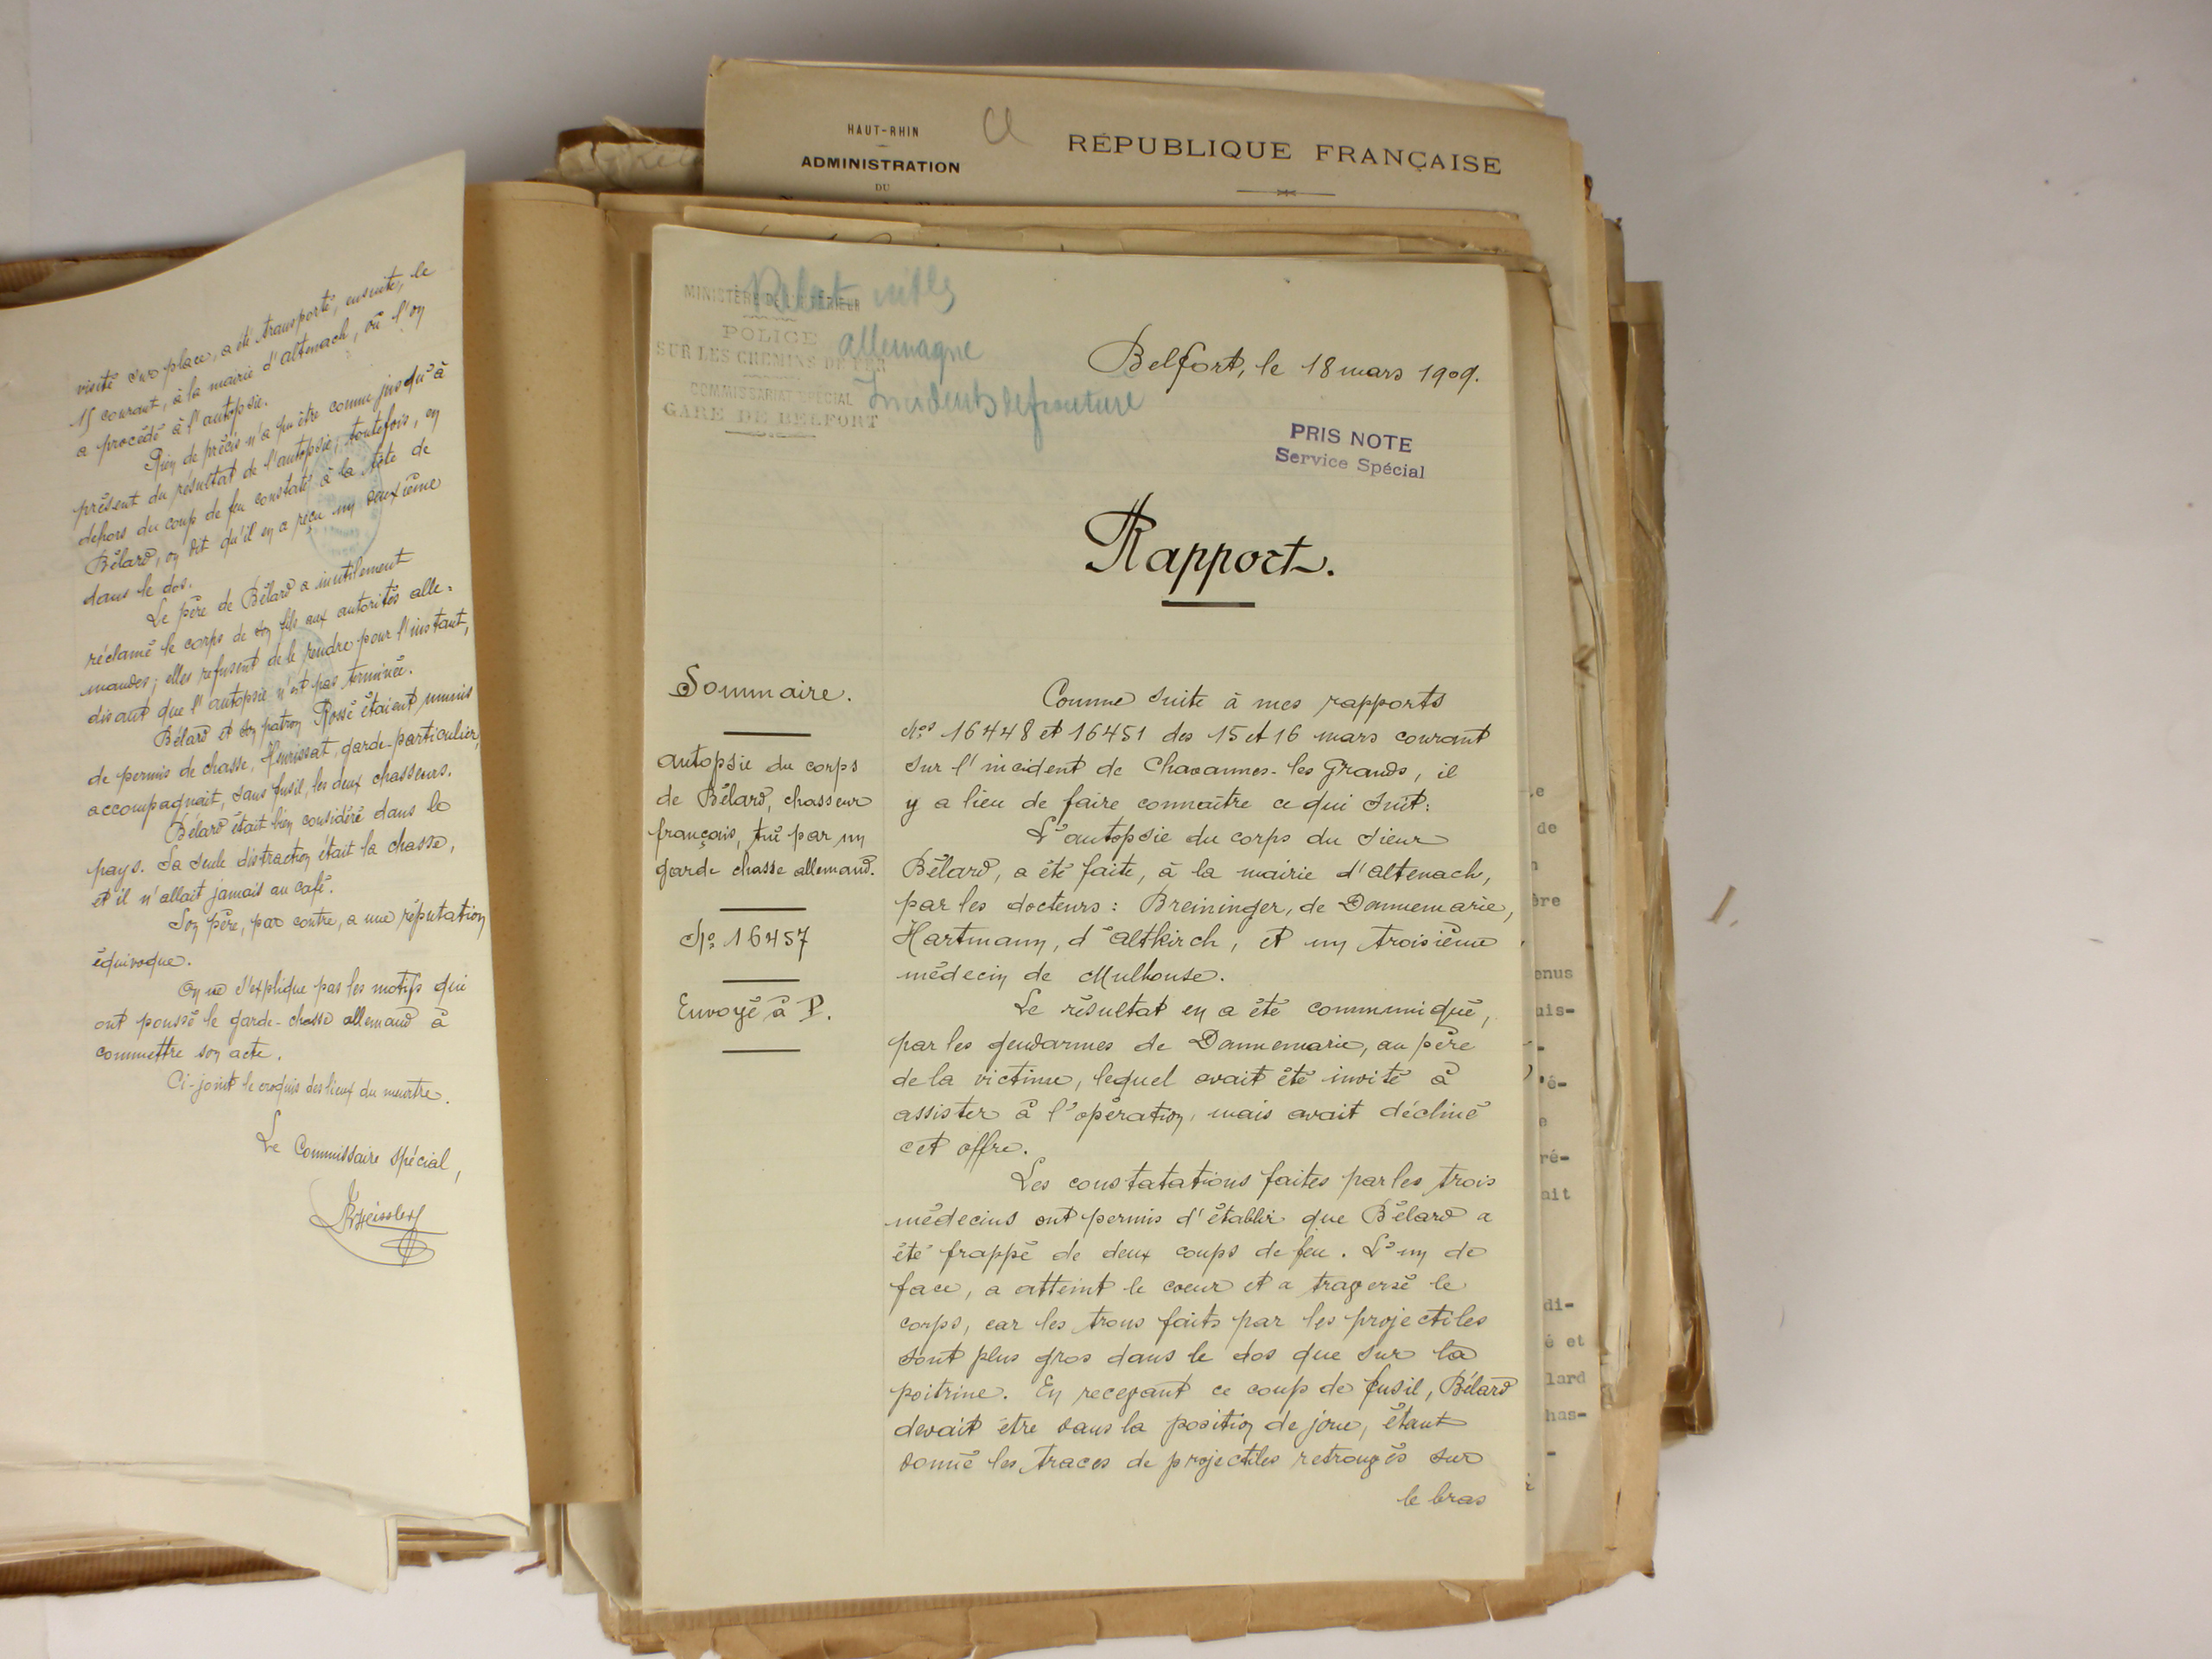 visité sur place, a été transporté, ensuite, le
15 courant, à la mairie d'altenach, où l'on
a procédé à l'autopsie.
Rien de précis n'a pu être connu jusqu'à
présent du résultat de l'autopsie; toutefois, en
dehors du coup de feu constaté à la tête de
Bélard, on dit qu'il en a reçu un deuxième
dans le dos.
Le père de Bélard a inutilement
réclamé le corps de son fils aux autorités alle=
mandes; elles refusent de le rendre pour l'instant,
disant que l'autopsie n'est pas terminée.
Bélard et son patron Rossé étaient munis
de permis de chasse, Henrissat, garde-particulier,
accompagnait, sans fusil, les deux chasseurs.
Bélard était bien considéré dans le
pays. Sa seule distraction était la chasse,
et il n'allait jamais au café.
Son père, par contre, a une réputation
équivoque.
On ne s'explique pas les motifs qui
ont poussé le garde-chasse allemand à
commettre son acte.
Ci-joint le croquis des lieux du meurtre.
Le Commissaire spécial,
HAUT-RHIN
ADMINISTRATION
DU
RÉPUBLIQUE FRANÇAISE
MINISTÈRE DE L'INTÉRIEUR
POLICE
SUR LES CHEMINS DE FER
COMMISSARIAT SPÉCIAL
GARE DE BELFORT
allemagne
Incidents de frontière
Belfort, le 18 mars 1909.
PRIS NOTE
Service Spécial
Rapport.
Sommaire.
autopsie du corps
de Bélard, chasseur
français, tué par un
garde chasse allemand.
No 16457
Envoyé à P.
Comme suite à mes rapports
Nos 16448 et 16451 des 15 et 16 mars courant
sur l'incident de Chavannes-les Grands, il
y a lieu de faire connaître ce qui suit:
L'autopsie du corps du sieur
Bélard, a été faite, à la mairie d'altenach,
par les docteurs: Breininger, de Dannemarie,
Hartmann, d'altkirch, et un troisième
médecin de Mulhouse.
Le résultat en a été communiqué,
par les gendarmes de Dannemarie, au père
de la victime, lequel avait été invité à
assister à l'opération, mais avait décliné
cet offre.
Les constatations faites par les trois
médecins ont permis d'établir que Bélard a
été frappé de deux coups de feu. L'un de
face, a atteint le coeur et a traversé le
corps, car les trous faits par les projectiles
sont plus gros dans le dos que sur la
poitrine. En recevant ce coup de fusil, Bélard
devait être dans la position de joue, étant
donné les traces de projectiles retrouvés sur
le bras
de
ère
enus
uis-
ré-
ait
di-
é et
lard
has-